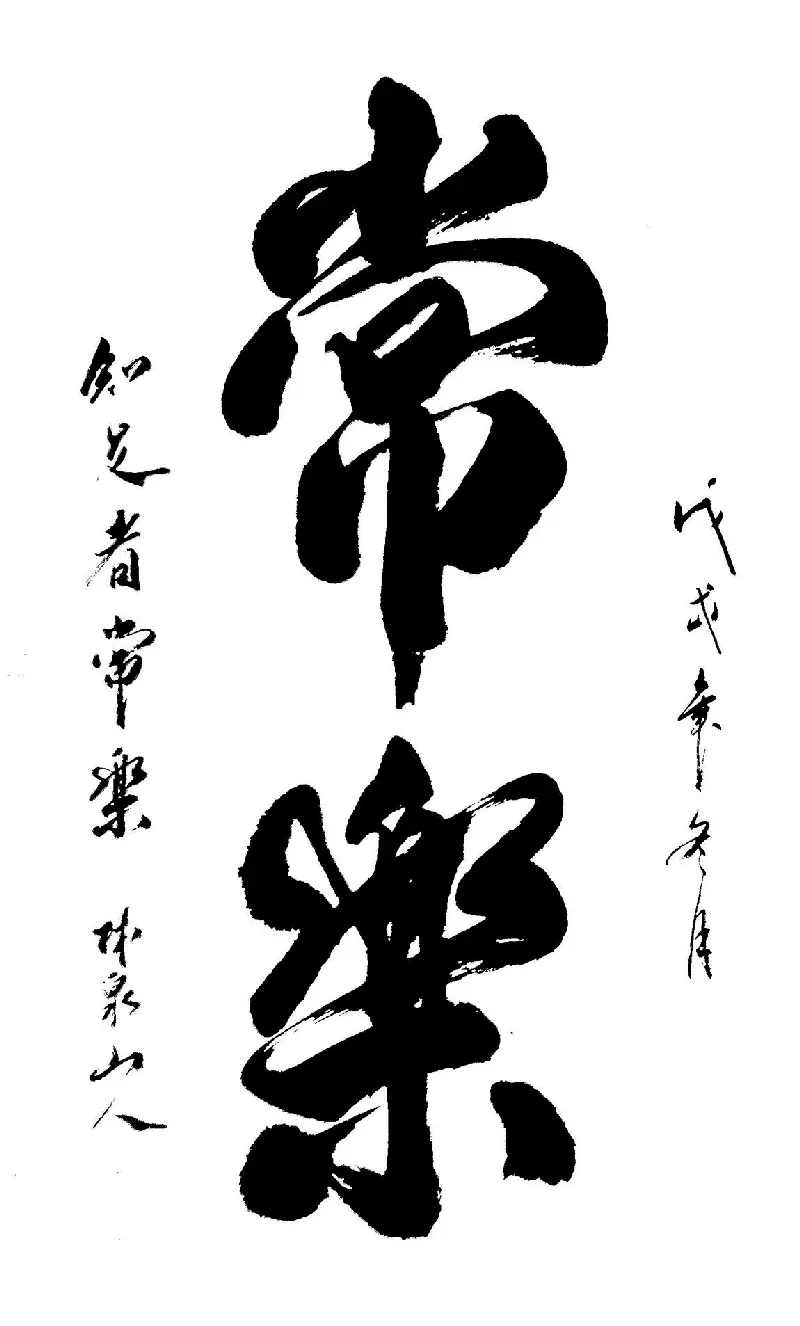 戊戌年冬月
常樂
知足者常樂 林泉山人